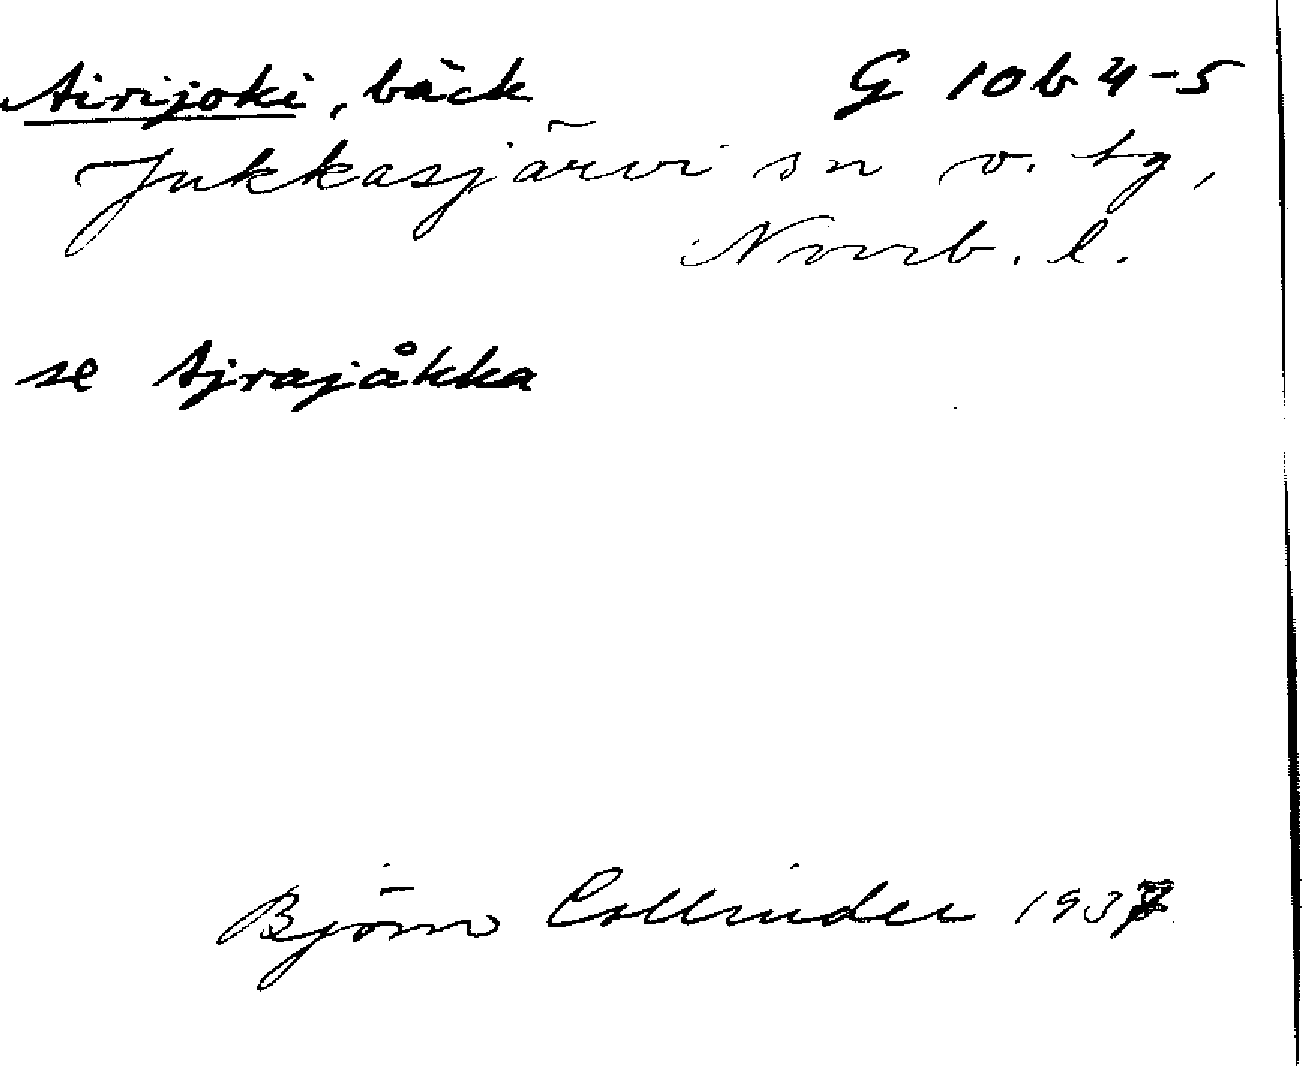 Airijoki, bäck G 10b 4-5
Jukkasjärvi sn v. tg,
Norrb. l.
se Ajrajåkka
Björn Collinder 1937